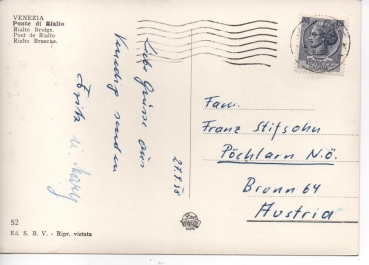 VENEZIA
Ponte di Rialto
Rialto Bridge.
Pont de Rialto
Rialto Bruecke.
Liebe Grüsse aus
Venedig senden
Fritz u.
27.9.58
Fam.
Franz Stifsohn
Pöchlarn N.Ö.
Brunn 64
Austria
52
Ed. S. B. V. - Ripr. vietata